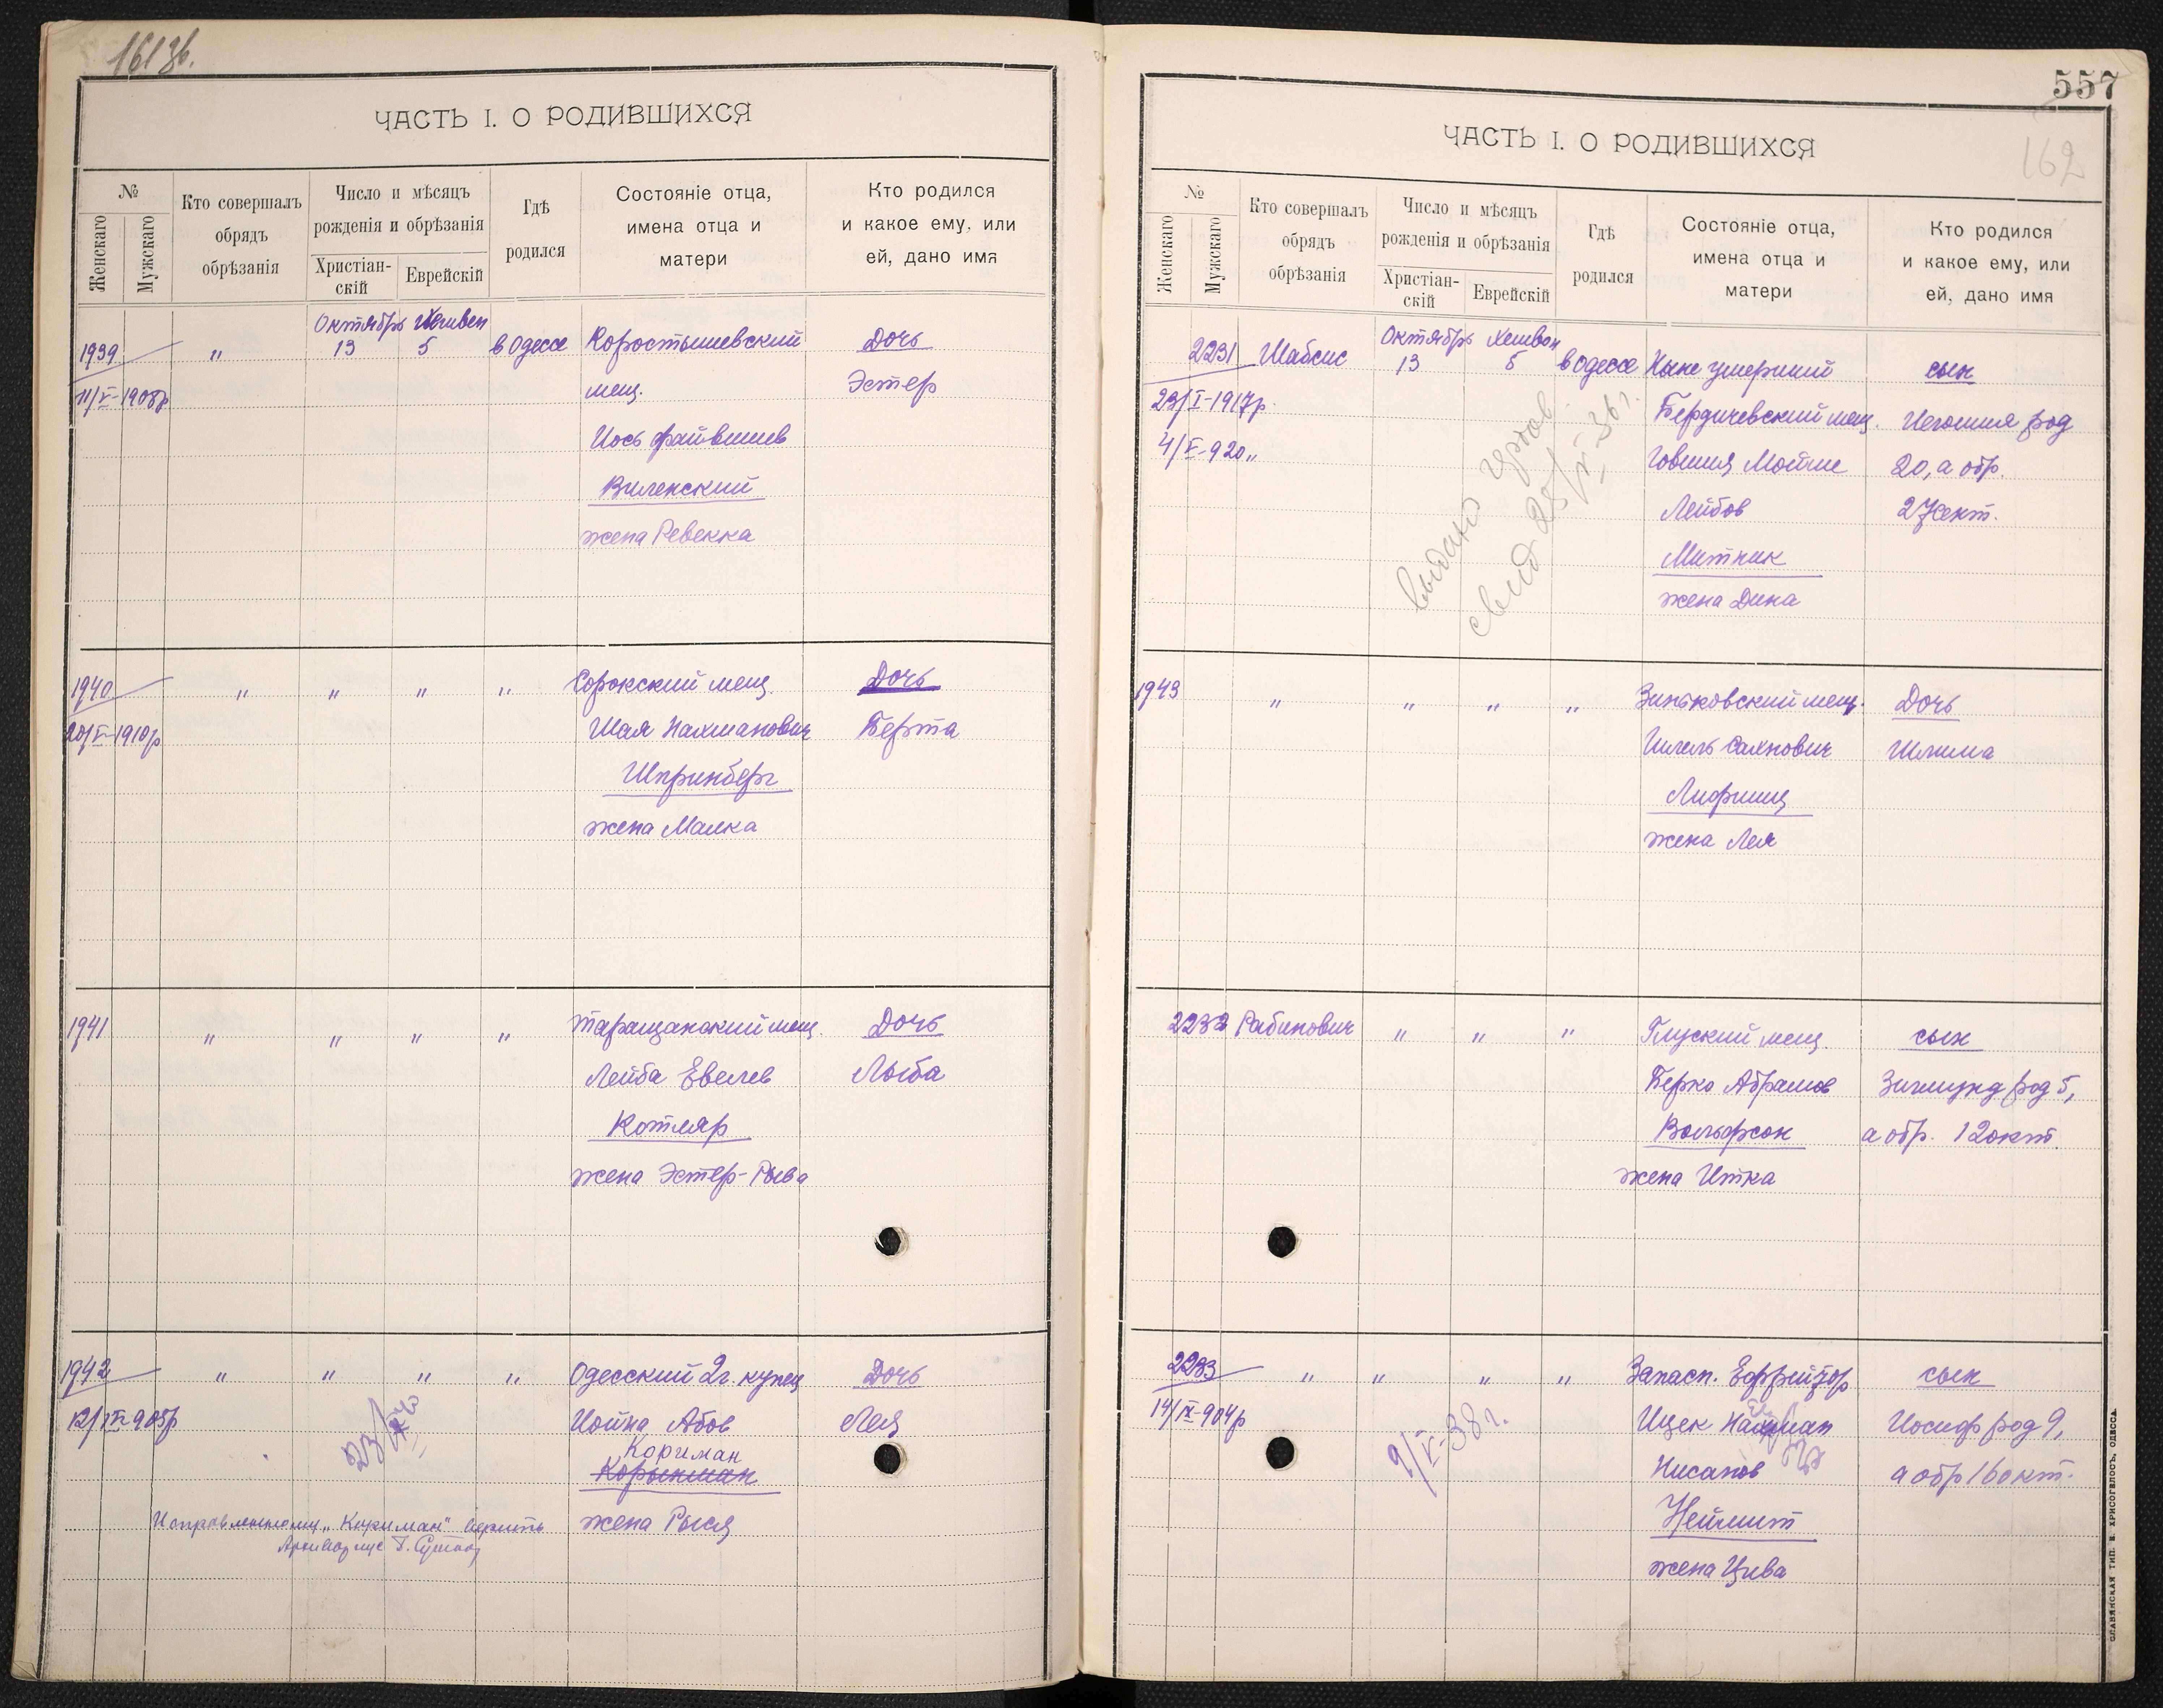 161 зв.
ЧАСТЬ I. О РОДИВШИХСЯ
№
Женскаго
Мужскаго
Кто совершалъ
обрядъ
обрѣзанія
Число и мѣсяцъ
рожденія и обрѣзанія
Христіан-
скій
Еврейскій
Гдѣ
родился
Состояніе отца,
имена отца и
матери
Кто родился
и какое ему, или
ей, дано имя
Октябрь Хешвен
1939 " 13 5 в Одессе Коростышевский Дочь
11/V-1908р мещ. Эстер
Иось Файвишев
Виленский
жена Ревекка
1940 " " " " Сорокский мещ. Дочь
1910р Шая Нахманович Берта
Шпринберг
жена Малка
1941 " " " " Таращанский мещ. Дочь
Лейба Евелев Лыба
Котляр
жена Эстер-Рыва
1942 " " " " Одесский 2г. купец Дочь
Иойна Абов Лея
Кориман
Корынман
жена Рыся
557
162
ЧАСТЬ I. О РОДИВШИХСЯ
№
Женскаго
Мужскаго
Кто совершалъ
обрядъ
обрѣзанія
Число и мѣсяцъ
рожденія и обрѣзанія
Христіан-
скій
Еврейскій
Гдѣ
родился
Состояніе отца,
имена отца и
матери
Кто родился
и какое ему, или
ей, дано имя
Октябрь Хешвен
2231 Шабсис 13 5 в Одессе Ныне умерший сын
23/I-1917р. Бердичевский мещ. род
4/V-920 " Мойше 20, а обр.
Лейбов 27 сент.
Митник
жена Дина
выдано
свид 25/V-36 г.
1943 " " " " Зиньковский мещ. Дочь
Сахнович Шлима
Лифшиц
жена Лея
2232 Рабинович " " " Глуский мещ. сын
Берко Абрамов Зигмунд род 5,
Вольфсон а обр. 12 окт.
жена Итка
2233 " " " " Запасн. Ефрейтор сын
14/IX-904р Ицек Иосиф род 9,
9/V-38 г. Нисанов а обр 16 окт.
Неймит
жена Цива
СЛАВЯНСКАЯ ТИП. Е. ХРИСОГЕЛОСЪ, ОДЕССА.